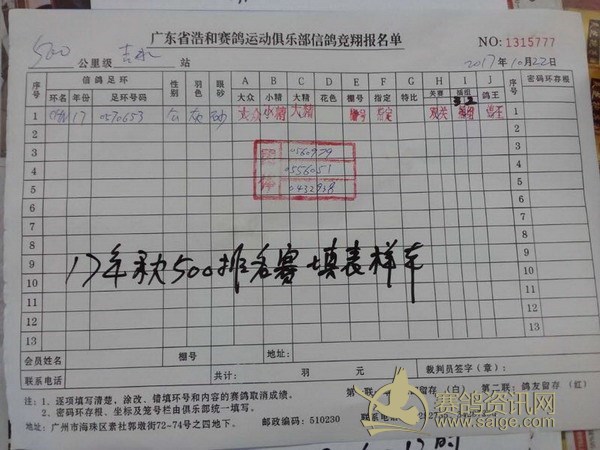 广东省浩和赛鸽运动俱乐部信鸽竞翔报名单
NO: 1315777
500 公里级 站
2017年10月22日
序号 信鸽足环 性别 羽色 眼砂 A B C D E F G H I J 密码环存根 序号
环名 年份 足环号码 大众 小精 大精 花色 棚号 指定 特比 关赛 鸽王
1 17 0570653 大众 小精 大精 棚号 指定 双关 鸽王 1
2 2
3 0560979 3
4 0556051 4
5 0432938 5
6 6
7 7
8 8
9 9
10 17年 500排名赛 填表样本 10
11 11
12 12
13 13
会员姓名 棚号 地址:
联系电话 共计: 羽 元 裁判员签字(章):
注:1. 逐项填写清楚、涂改、错填环号和内容的赛鸽取消成绩。
留存(白) 第二联:鸽友留存(红)
2. 密码环存根、坐标及笼号栏由俱乐部统一填写。
地址:广州市海珠区素社郭墩街72-74号之四地下。 邮政编码:510230 联系电话
赛鸽资讯网
www.saige.com